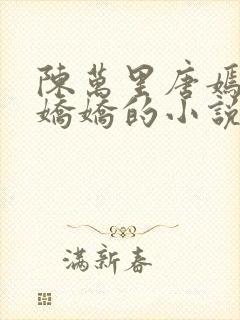 陳萬里唐嫣
嬌嬌的小說
滿新春